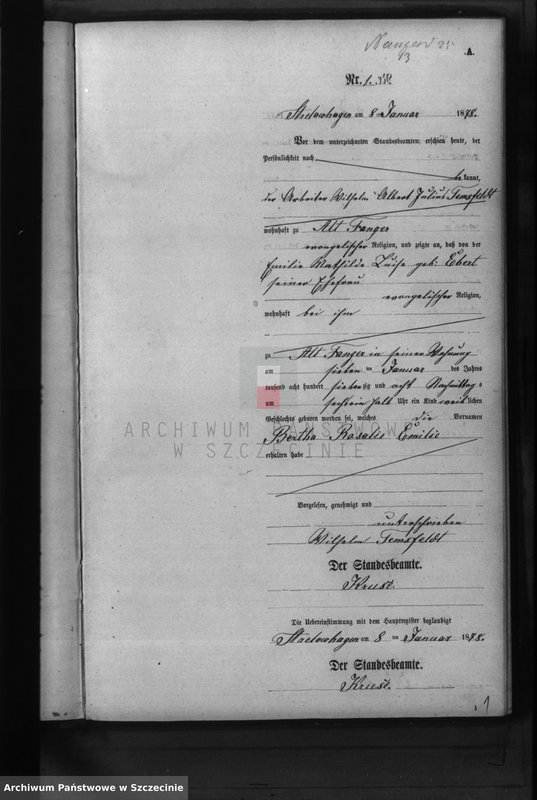 A.
Nr. 1.
Strelowhagen am 8 Januar 1878.
Vor dem unterzeichneten Standesbeamten erschien heute, der
Persönlichkeit nach
be kannt,
der Arbeiter Wilhelm Albert Julius Temsfeldt
wohnhaft zu Alt Fanger
evangelischer Religion, und zeigte an, daß von der
Emilie Mathilde Luise geb: Ebert
seiner Ehefrau
evangelischer Religion,
wohnhaft bei ihm
zu Alt Fanger in seiner Wohnung
am sieben ten Januar des Jahres
tausend acht hundert siebenzig und acht Nachmittags
um sechs ein halb Uhr ein Kind weib lichen
Geschlechts geboren worden sei, welches die Vornamen
Bertha Rosalie Emilie
erhalten habe
Vorgelesen, genehmigt und
unterschrieben
Wilhelm Temsfeldt
Der Standesbeamte.
Kruse.
Die Uebereinstimmung mit dem Hauptregister beglaubigt
Strelowhagen am 8 ten Januar 1878.
Der Standesbeamte.
Kruse.
1
ARCHIWUM PAŃSTWOWE
W SZCZECINIE
Archiwum Państwowe w Szczecinie